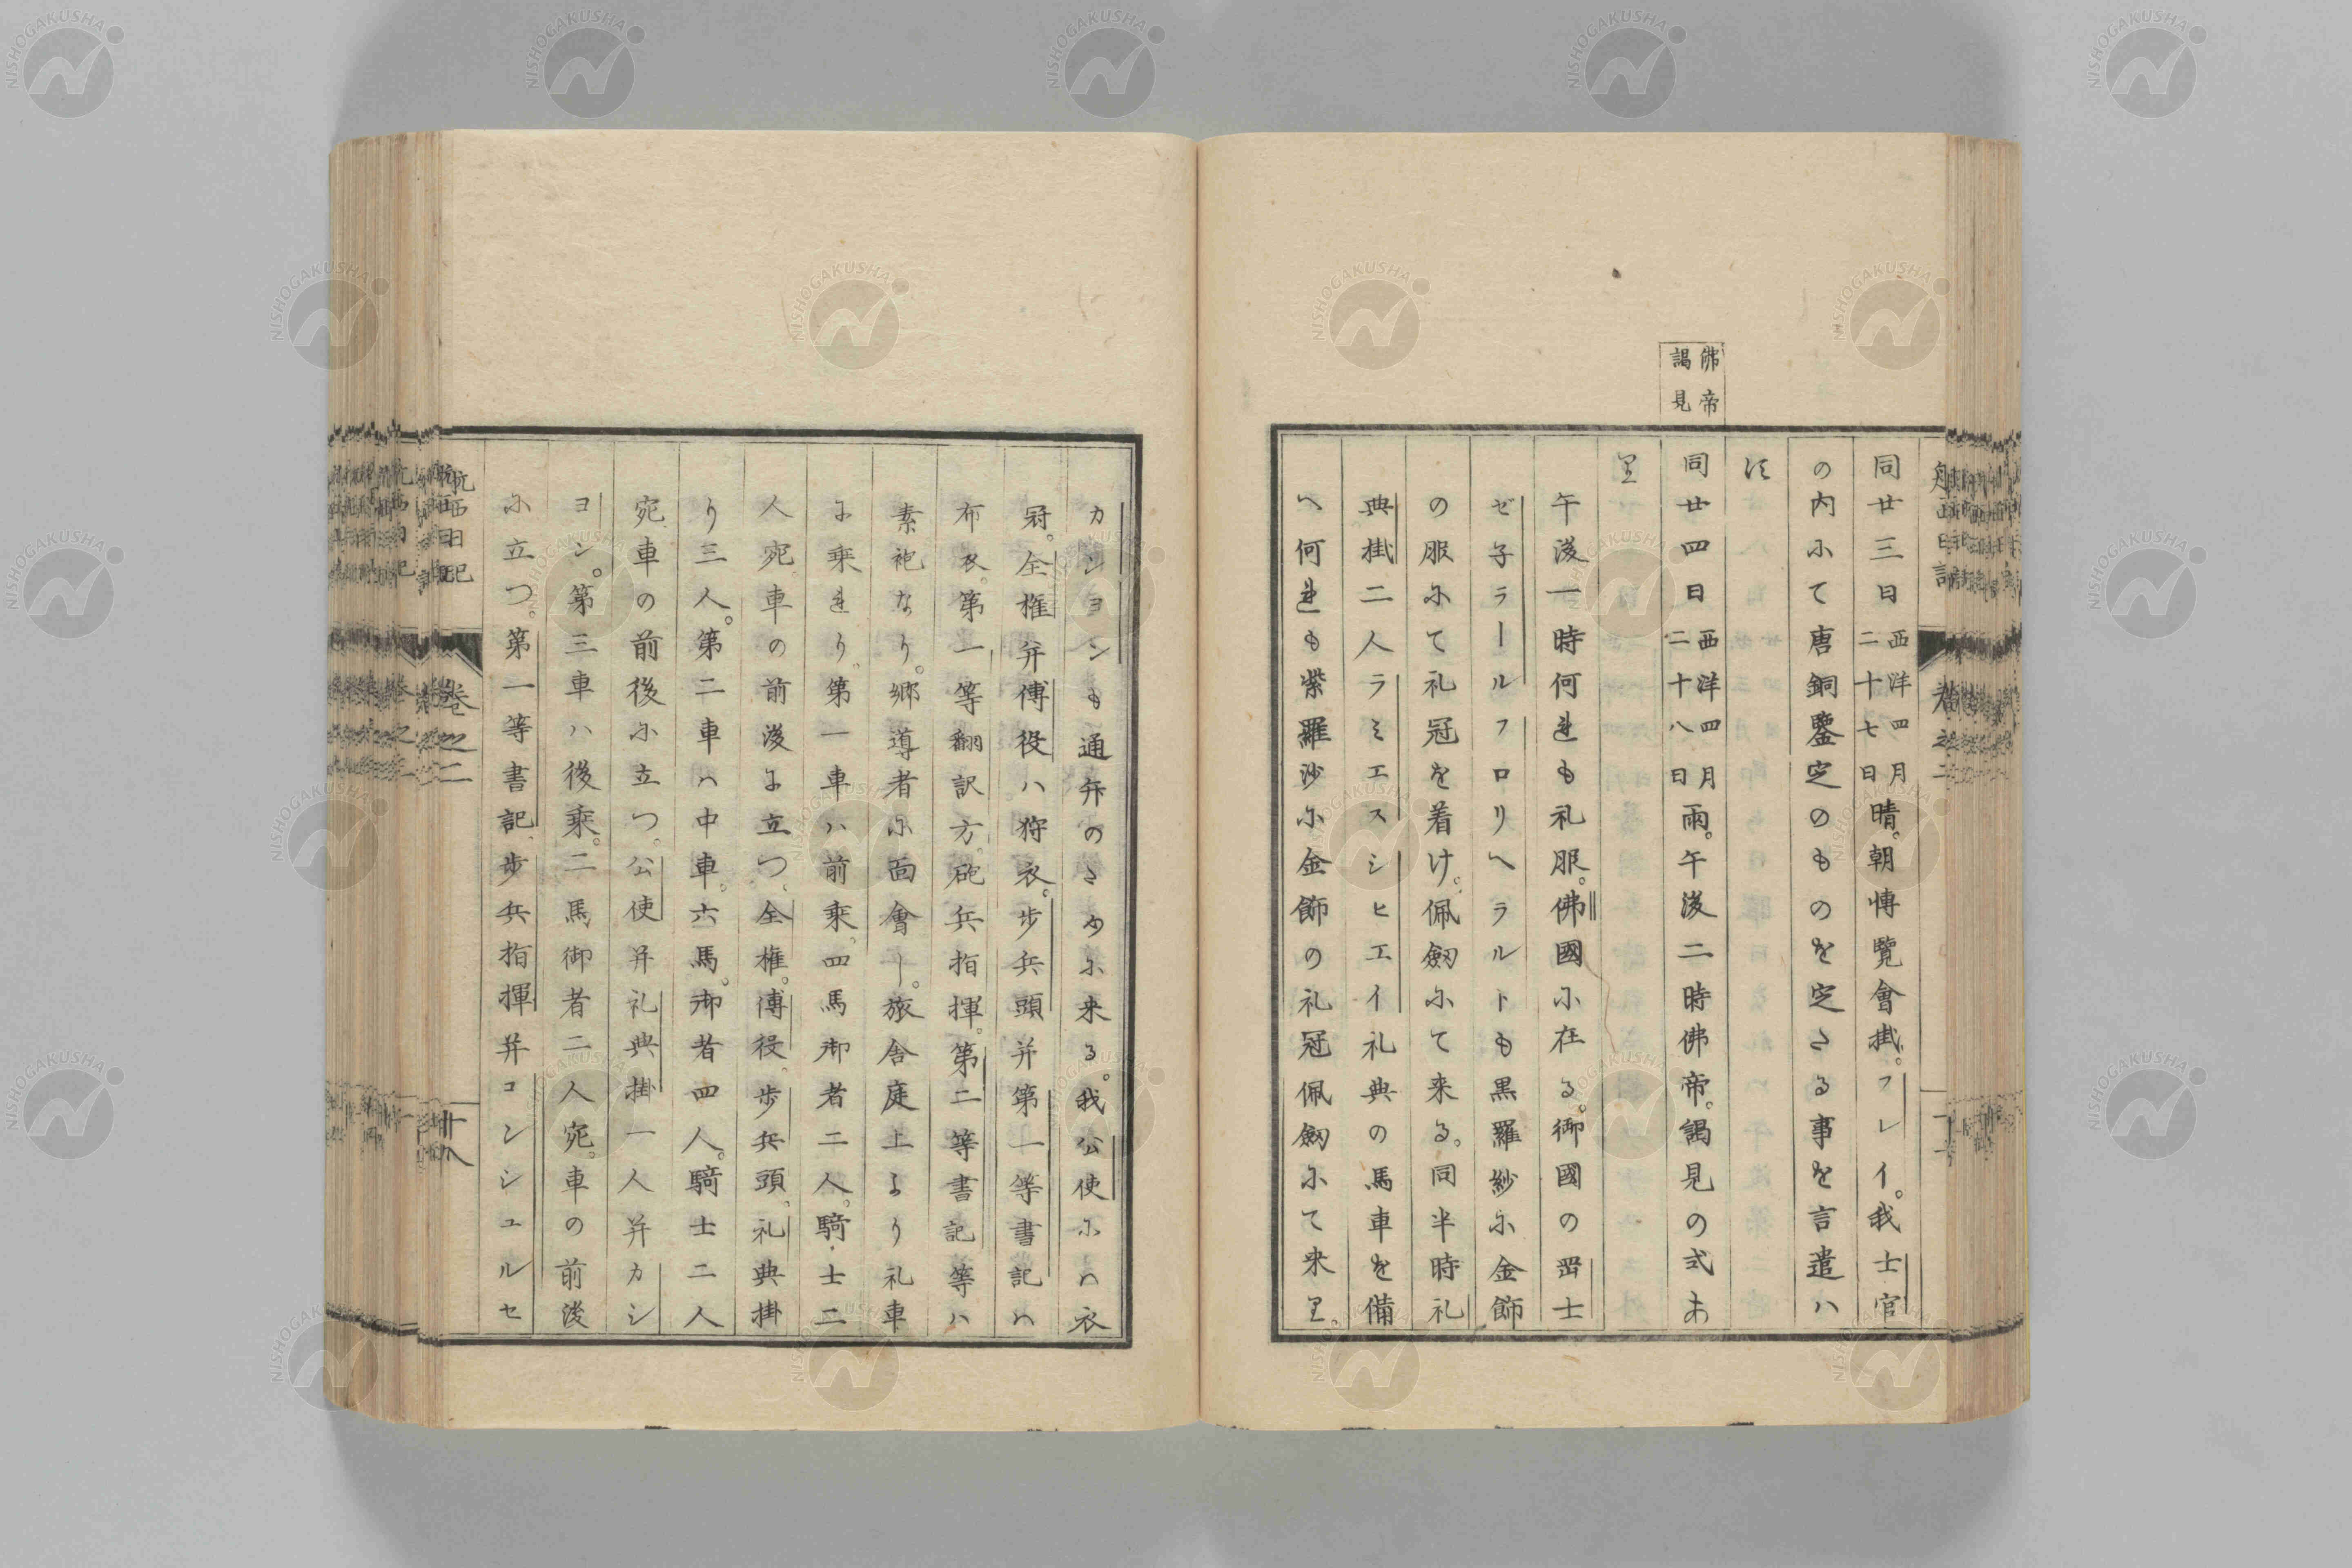 佛帝
謁見
同廿三日西洋四月二十七日晴。朝博覽會掛。フレイ。我士官
の内尓て唐銅鑒定のものを定さる事を言遣ハ
須
同廿四日西洋四月二十八日雨。午後二時佛帝。謁見の式あ
里
午後一時何連も礼服。佛國尓在る。御國の罡士
ゼ子ラールフロリヘラルトも黒羅紗尓金飾
の服尓て礼冠を着け。佩劔尓て来る。同半時礼
典掛二人ラミエスシヒエイ礼典の馬車を備
へ何連も紫羅沙尓金飾の礼冠佩劔尓て来里。
カションも通弁のさめ尓来る。我公使尓ハ衣
冠。全権弁傅役ハ狩衣。歩兵頭并第一等書記ハ
布衣。第一等翻訳方。砲兵指揮。第二等書記等ハ
素袍なり。郷導者尓面會し。旅舎庭上より礼車
尓乗連り。第一車ハ前乗。四馬御者二人。騎士二
人宛車の前後尓立つ、全権。傅役、歩兵頭。礼典掛
り三人。第二車ハ中車。六馬。御者四人。騎士二人
宛車の前後尓立つ。公使并礼典掛一人并カシ
ヨン。第三車ハ後乗。二馬御者二人宛。車の前後
尓立つ。第一等書記、歩兵指揮并コンシュルセ
航西日記
巻之二
十八